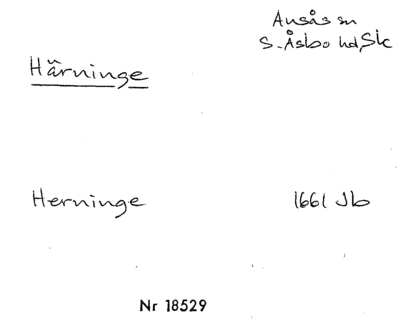 Ausås sn
S. Åsbo hd, Sk
Härninge
Herninge 1661 Jb
Nr 18529